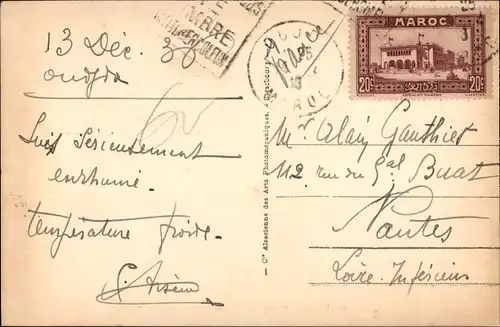 TIMBRE
13 Déc. 36
Oudjda
Suis sérieusement
enrhumé.
Température froide.
MAROC
MAROC
20c 20c
Cie Alsacienne des Arts Photomécaniques, Strasbourg
M. Alain Gauthier
112 rue du Gal Buat
Nantes
Loire Inférieure